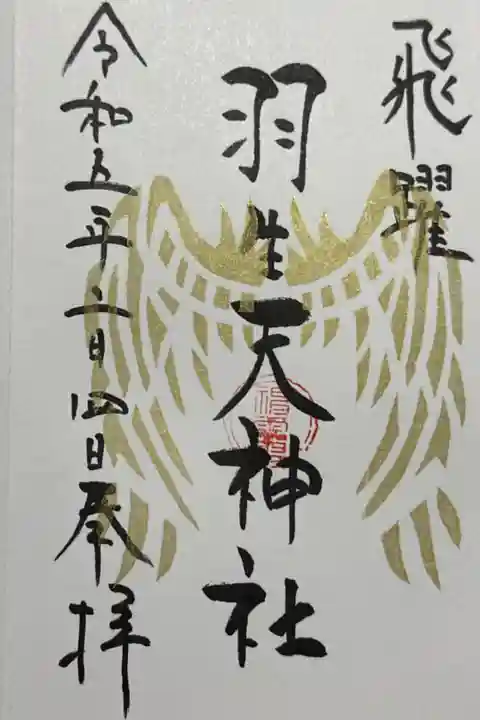 飛躍
羽生天神社
令和五年二月四日奉拝